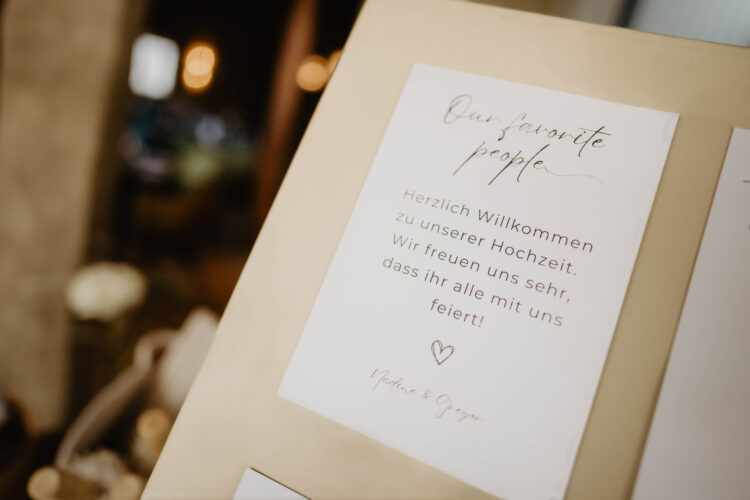 Our favorite
people
Herzlich Willkommen
zu unserer Hochzeit.
Wir freuen uns sehr,
dass ihr alle mit uns
feiert!
Nadine & Gregor